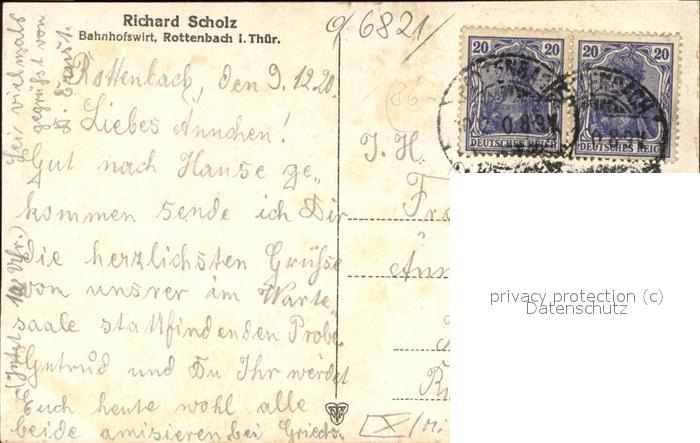 Richard Scholz
Bahnhofswirt, Rottenbach i. Thür.
6821
Rottenbach, den 9.12.20.
Liebes Ännchen!
Gut nach Hause ge„
kommen sende ich Dir
die herzlichsten Grüße
von unsrer im Warte„
saale stattfindenden Probe.
Gertrud und Du Ihr werdet
Euch heute wohl alle
beide amüsieren bei
Sei vielmals
gegrüßt von
(Jetzt 10 Uhr.)
J. H.
20 20
20 20
DEUTSCHES REICH
DEUTSCHES REICH
privacy protection (c)
Datenschutz